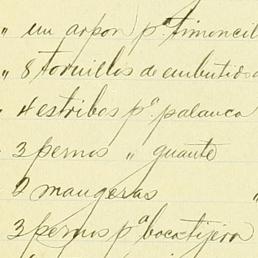 " un arpon pª timoncil
" 8 tornillos de embutido
" 4 estribos pª palanca
" 3 pernos " guante
2 mangeras "
3 pernos pª bocatijera